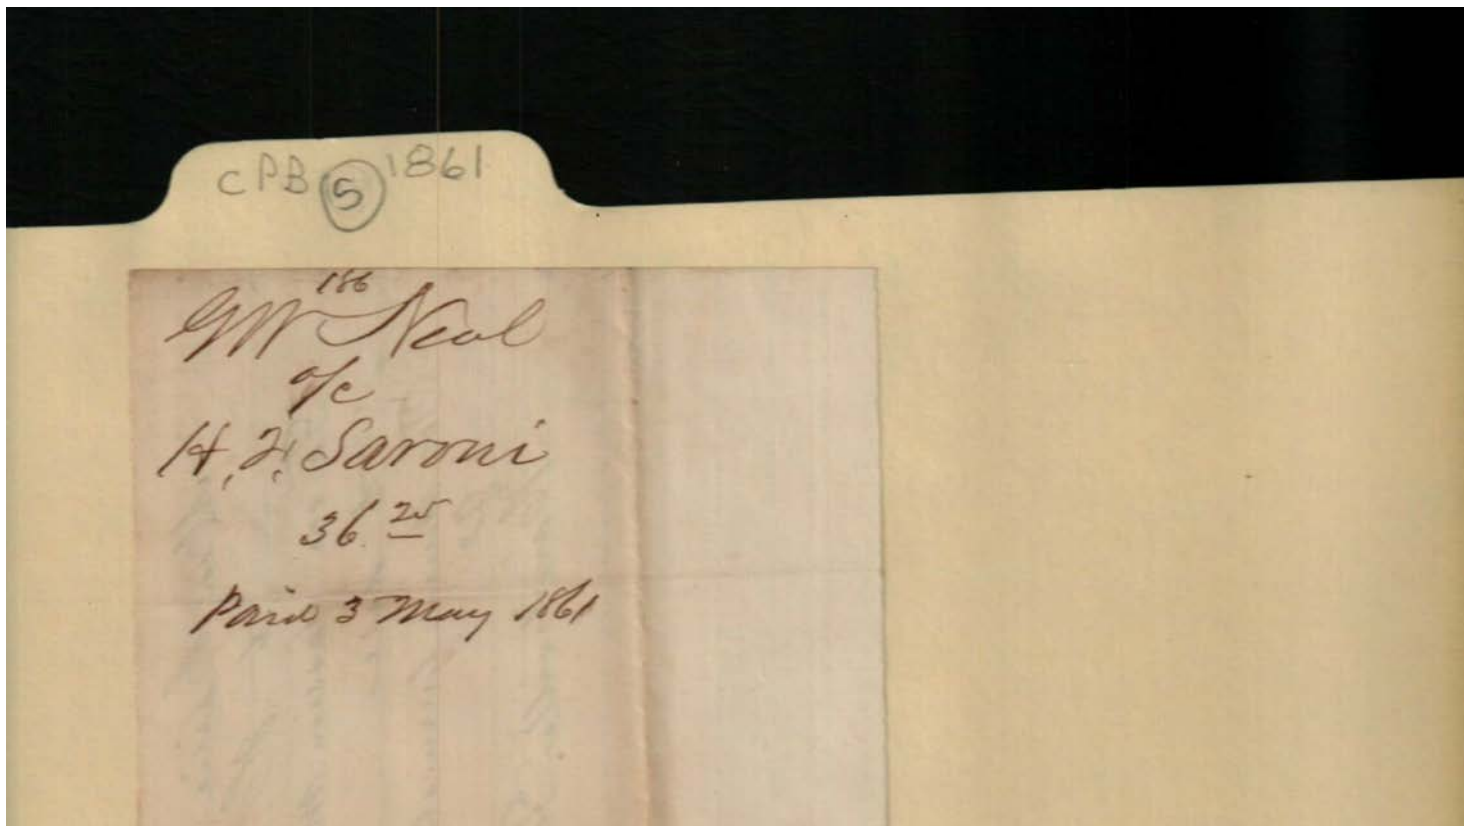 CPB 5 1861
186
GW Neal
a/c
H, F, Saroni
36.25
Paid 3 May 1861